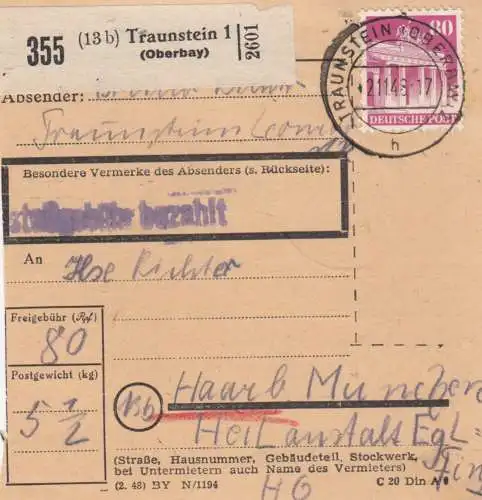 355 (13b) Traunstein 1
(Oberbay)
2601
80
DEUTSCHE POST
TRAUNSTEIN (OBERBAY)
h
Absender:
Traunstein
Besondere Vermerke des Absenders (s. Rückseite):
bezahlt
An Ilse Richter
Freigebühr (Rpf)
80
Postgewicht (kg)
5 1/2
13b Haar b München
Heilanstalt Egl=
fing
(Straße, Hausnummer, Gebäudeteil, Stockwerk,
bei Untermietern auch Name des Vermieters)
(2. 48) BY N/1194 C 20 Din A
H6